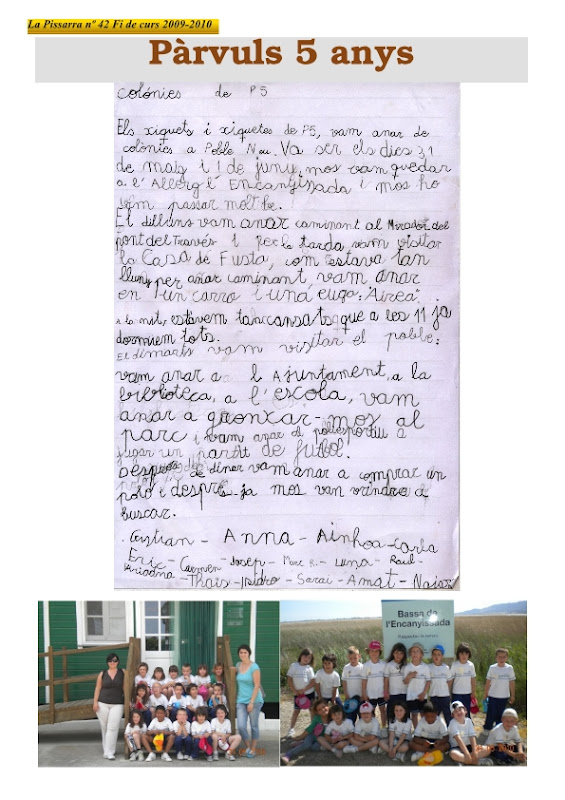 La Pissarra nº 42 Fi de curs 2009-2010
Pàrvuls 5 anys
colónies de P5
Els xiquets i xiquetes de P5, vam anar de
colònies a Poble Nou. Va ser els dies 31
de maig i 1 de juny, mos vam quedar
a l'Alberg l'Encanyissada i mos ho
vam passar molt be.
El dilluns vam anar caminant al Mirador del
pont del Través i per la tarda, vam visitar
la Casa de Fusta, com estava tan
lluny per anar caminant, vam anar
en un carro i una euga: "Airea".
a la nit, estàvem tan cansats que a les 11 ja
dormiem tots.
El dimarts vam visitar el poble:
vam anar a l'Ajuntament, a la
biblioteca, a l'escola, vam
anar a gronxar-mos al
parc i vam anar al poliesportiu a
jugar un partit de futbol.
Després de dinar vam anar a comprar un
polo i després ja mos van vindre a
buscar.
Cristian - Anna - Ainhoa - Carla
Eric - Carmen - Josep - Marc R. - Luna - Raul -
Ariadna - Thais - Isidro - Sarai - Amat - Naiara
Bassa de
l'Encanyissada